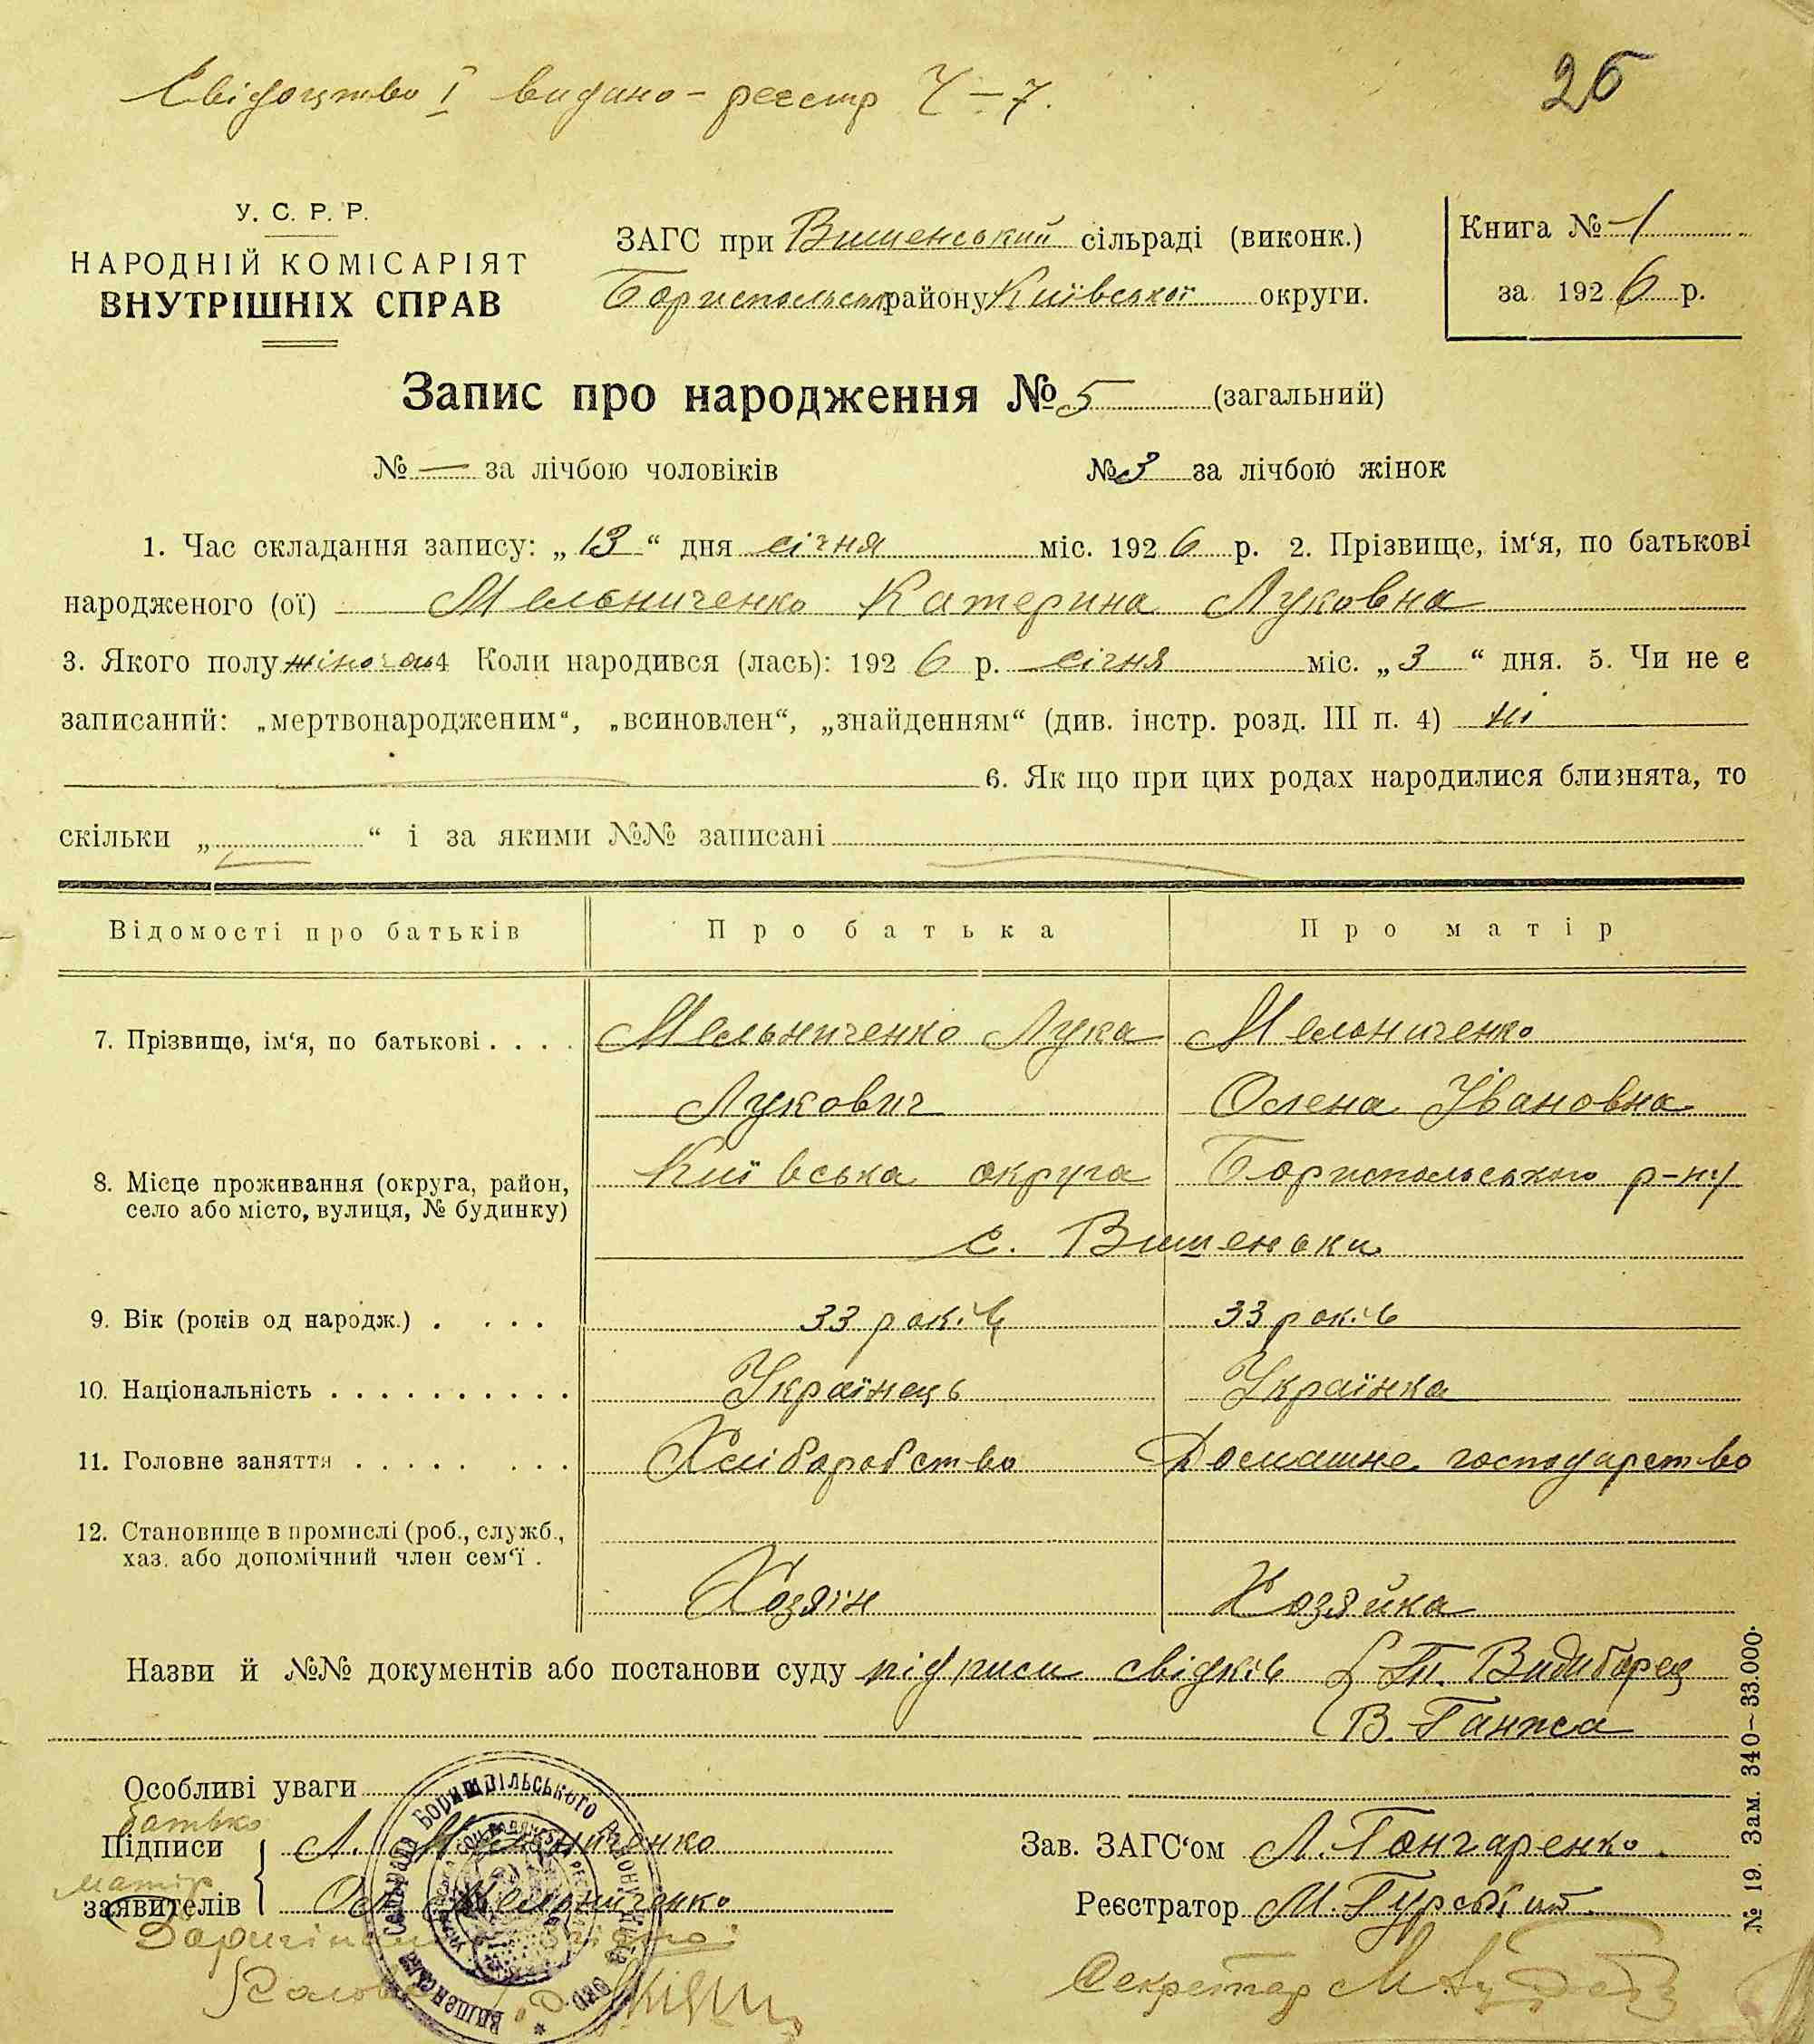 Свідоцтво І видано - реєстр Ч-7.
26
У. С. Р. Р.
НАРОДНІЙ КОМІСАРІЯТ
ВНУТРІШНІХ СПРАВ
ЗАГС при Вишенський сільраді (виконк.)
Бориспольськ району Київської округи.
Книга № 1
за 1926 р.
Запис про народження № 5 (загальний)
№ — за лічбою чоловіків № 3 за лічбою жінок
1. Час складання запису: „13“ дня січня міс. 1926 р. 2. Прізвище, ім‘я, по батькові
народженого (ої) Мельниченко Катерина Луковна
3. Якого полу жіночої 4 Коли народився (лась): 1926 р. січня міс. „3“ дня. 5. Чи не є
записаний: „мертвонародженим“, „всиновлен“, „знайденням“ (див. інстр. розд. III п. 4) ні
6. Як що при цих родах народилися близнята, то
скільки „ “ і за якими №№ записані
Відомості про батьків Про батька Про матір
7. Прізвище, ім‘я, по батькові . . . . Мельниченко Лука Мельниченко
Лукович Олена Івановна
8. Місце проживання (округа, район, Київська округа Бориспольського р-ну
село або місто, вулиця, № будинку)
с. Вишеньки
9. Вік (років од народж.) . . . . 33 років 33 років
10. Національність . . . . . . . . . . Українець Українка
11. Головне заняття . . . . . . . . Хліборобство Домашнє господарство
12. Становище в промислі (роб., служб.,
хаз. або допомічний член сем‘ї .
Хозяїн Хозяйка
Назви й №№ документів або постанови суду підписи свідків { Гп. Видиборец
В. Ганжа
Особливі уваги
батько
Підписи Л. Мельниченко Зав. ЗАГС‘ом Л. Гончаренко.
матір
заявителів Ол. Мельниченко Реєстратор М. Гурський
Секретар М
№ 19. Зам. 340—33.000.
Вишенська Сельрада Бориспільського району